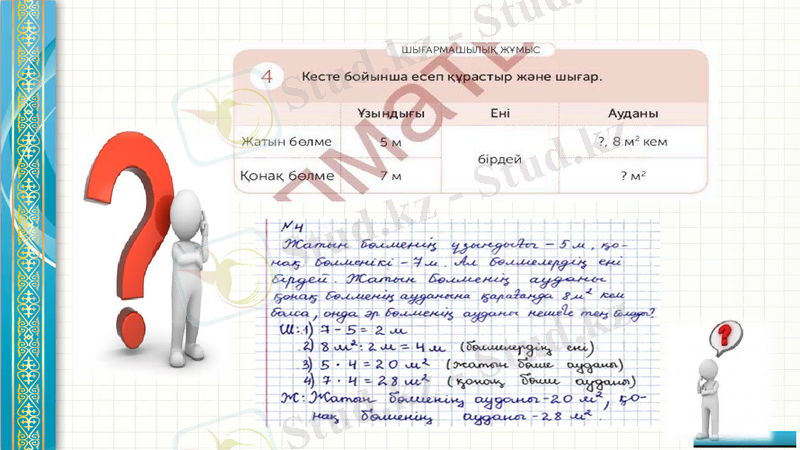 ШЫҒАРМАШЫЛЫҚ ЖҰМЫС
4 Кесте бойынша есеп құрастыр және шығар.
Ұзындығы Ені Ауданы
Жатын бөлме 5 м бірдей ?, 8 м² кем
Қонақ бөлме 7 м ? м²
№4
Жатын бөлменің ұзындығы – 5 м, қо-
нақ бөлменікі – 7 м. Ал бөлмелердің ені
бірдей. Жатын бөлменің ауданы
қонақ бөлменің ауданына қарағанда 8 м² кем
болса, онда әр бөлменің ауданы нешеге тең болады?
Ш: 1) 7 - 5 = 2 м
2) 8 м² : 2 м = 4 м (бөлмелердің ені)
3) 5 · 4 = 20 м² (жатын бөлме ауданы)
4) 7 · 4 = 28 м² (қонақ бөлме ауданы)
Ж: Жатын бөлменің ауданы - 20 м², қо-
нақ бөлменің ауданы - 28 м².
Stud.kz - Stud.kz